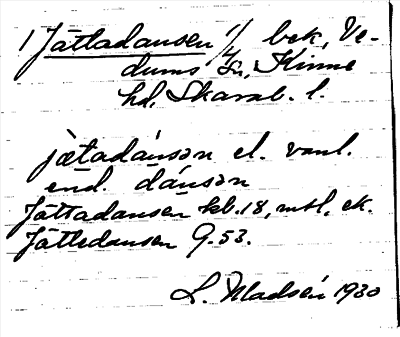 1 Jätladansen 1/4 bek, Ve-
dums sn, Kinne
hd, Skarab. l.
jætadánsən el. vanl.
end. dánsən
Jättadansen kb.18, mtl, ek.
Jättedansen G.53.
L. Madsén 1930